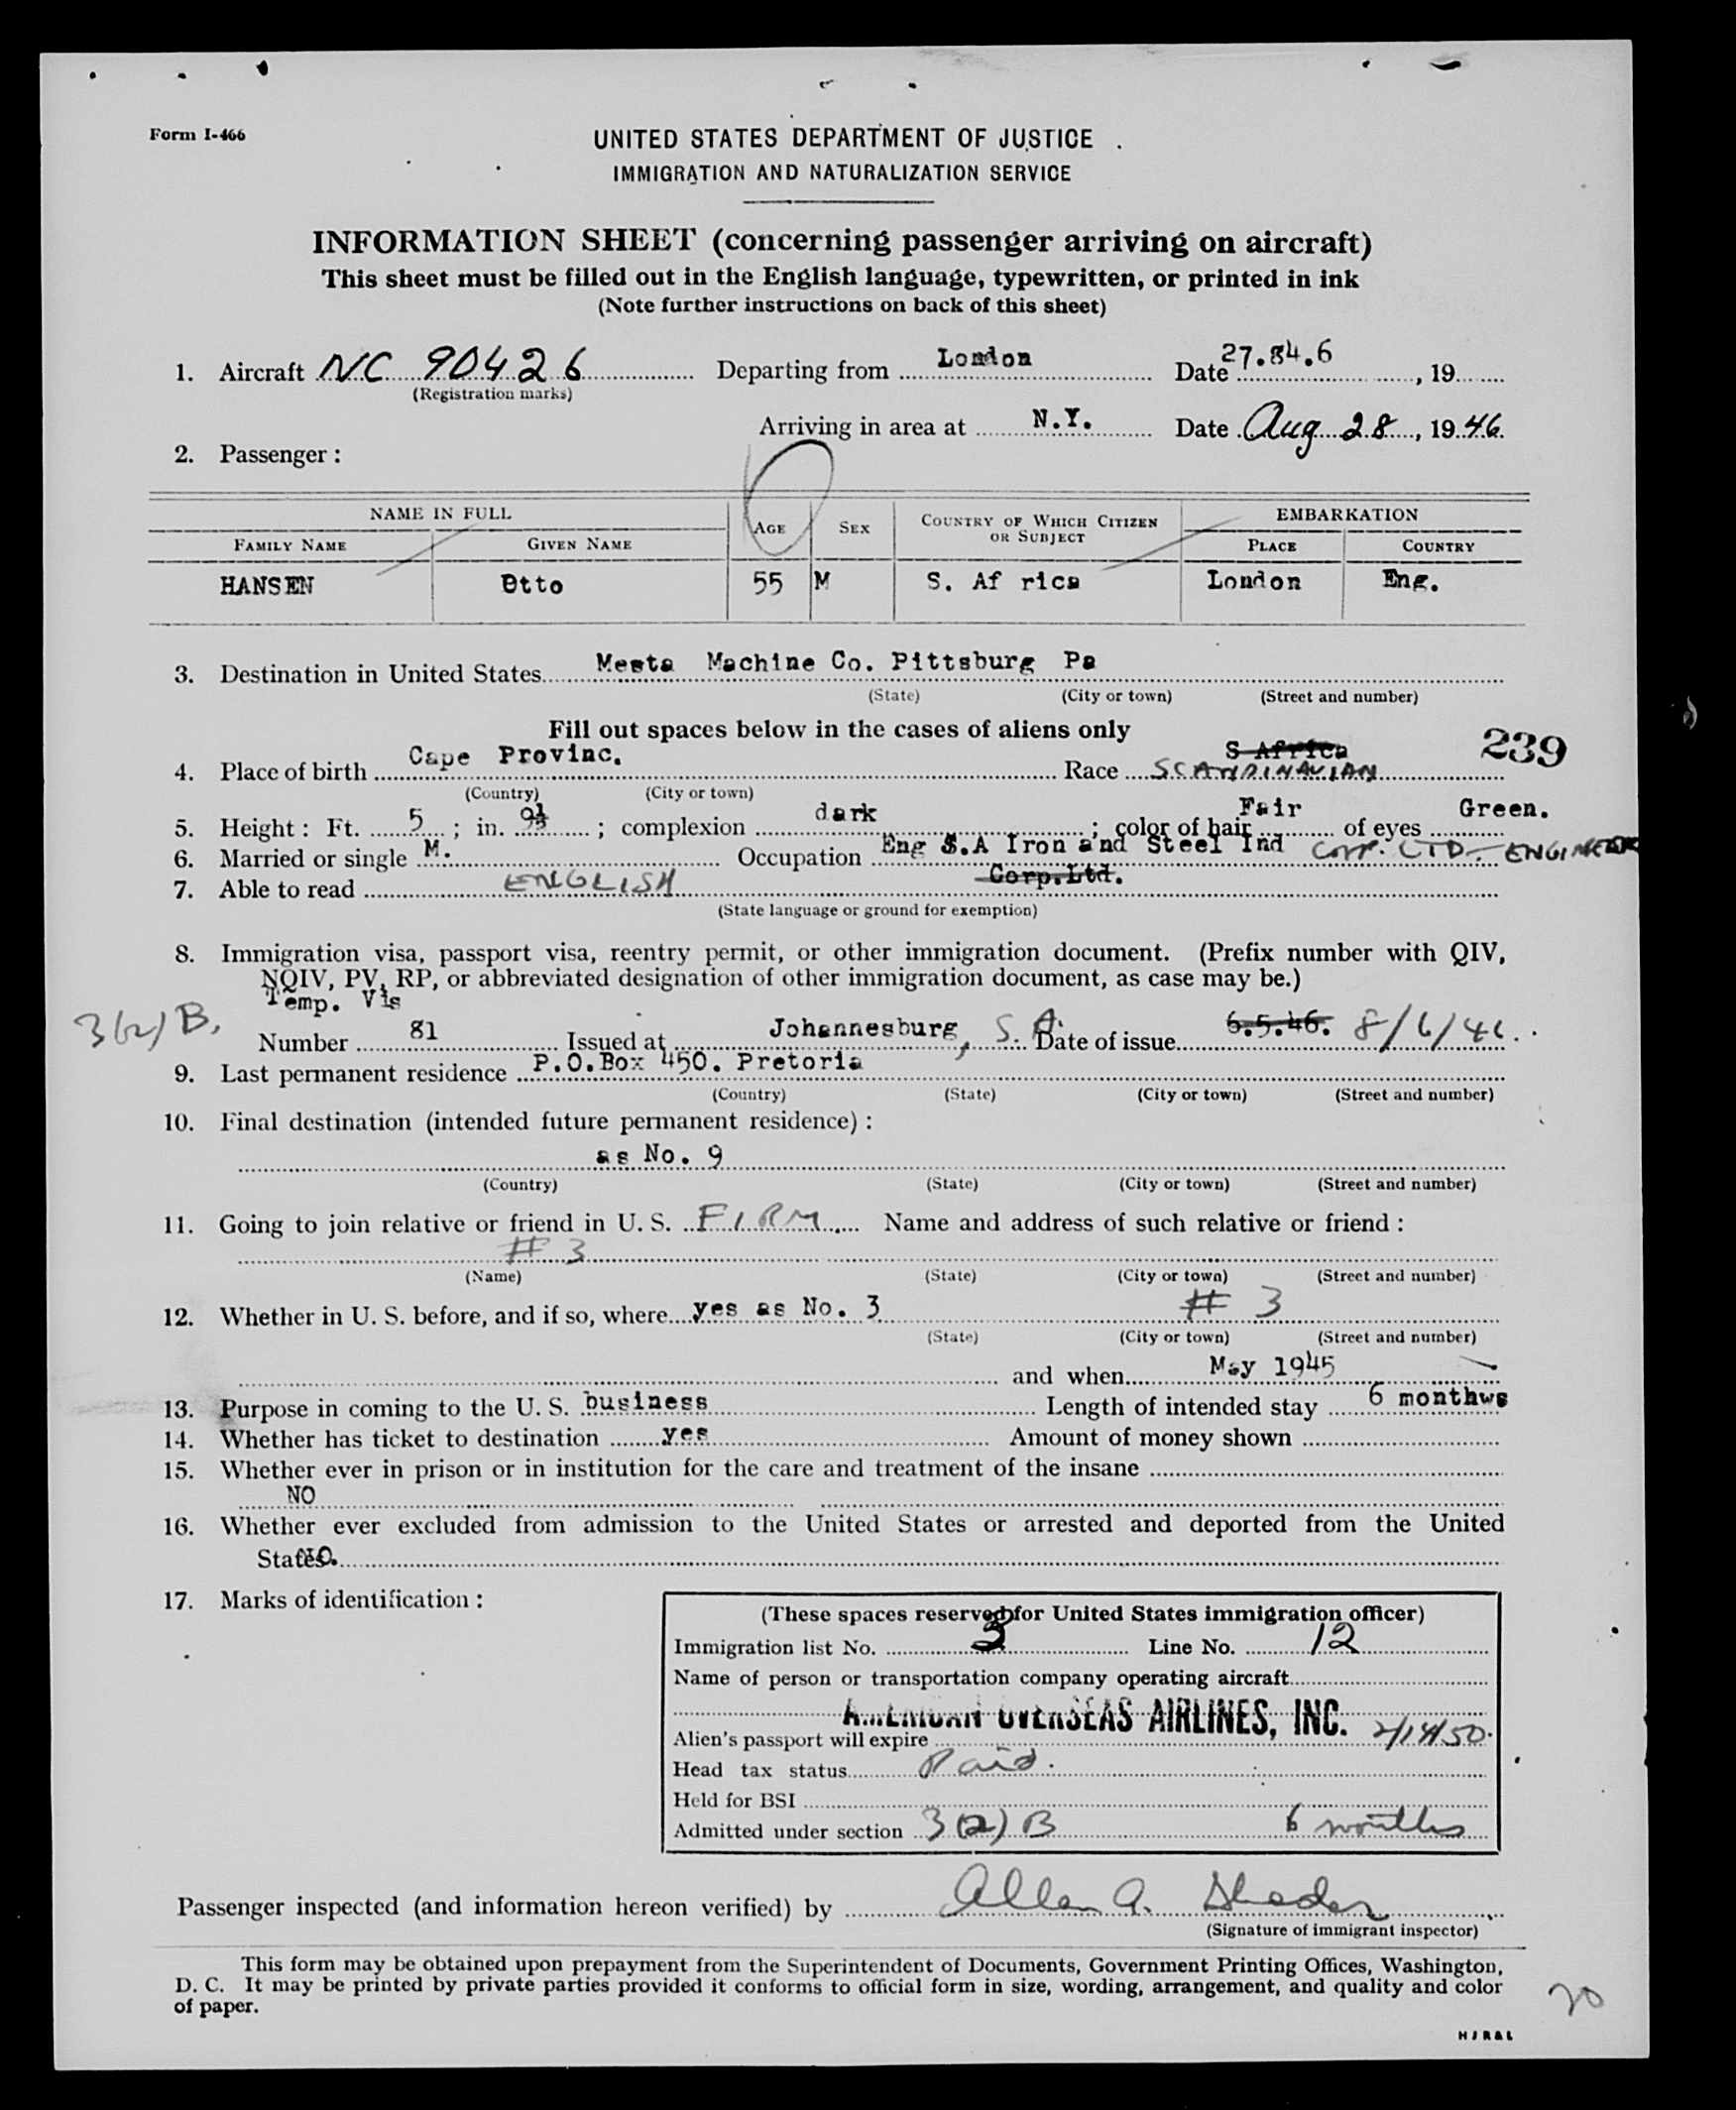 Form I-466
UNITED STATES DEPARTMENT OF JUSTICE
IMMIGRATION AND NATURALIZATION SERVICE
INFORMATION SHEET (concerning passenger arriving on aircraft)
This sheet must be filled out in the English language, typewritten, or printed in ink
(Note further instructions on back of this sheet)
1. Aircraft NC 90426 Departing from London Date 27.84.6, 19
(Registration marks)
Arriving in area at N.Y. Date Aug 28, 1946.
2. Passenger:
NAME IN FULL AGE SEX COUNTRY OF WHICH CITIZEN OR SUBJECT EMBARKATION
FAMILY NAME GIVEN NAME PLACE COUNTRY
HANSEN Otto 55 M S. Af rica London Eng.
3. Destination in United States Mesta Machine Co. Pittsburg Pa
(State) (City or town) (Street and number)
Fill out spaces below in the cases of aliens only
239
4. Place of birth Cape Provinc. Race S Africa SCANDINAVIAN
(Country) (City or town)
5. Height: Ft. 5; in. 9½; complexion dark; color of hair Fair of eyes Green.
6. Married or single M. Occupation Eng S.A Iron and Steel Ind Corp. LTD - ENGINEER
Corp.Ltd.
7. Able to read ENGLISH
(State language or ground for exemption)
8. Immigration visa, passport visa, reentry permit, or other immigration document. (Prefix number with QIV,
NQIV, PV, RP, or abbreviated designation of other immigration document, as case may be.)
Temp. Vis
3(2)B.
Number 81 Issued at Johannesburg, S.A. Date of issue 6.5.46. 8/6/46.
9. Last permanent residence P.O.Box 450. Pretoria
(Country) (State) (City or town) (Street and number)
10. Final destination (intended future permanent residence):
as No. 9
(Country) (State) (City or town) (Street and number)
11. Going to join relative or friend in U. S. FIRM Name and address of such relative or friend:
# 3
(Name) (State) (City or town) (Street and number)
12. Whether in U. S. before, and if so, where yes as No. 3 # 3
(State) (City or town) (Street and number)
and when May 1945
13. Purpose in coming to the U. S. business Length of intended stay 6 monthws
14. Whether has ticket to destination yes Amount of money shown
15. Whether ever in prison or in institution for the care and treatment of the insane
NO
16. Whether ever excluded from admission to the United States or arrested and deported from the United
States NO.
17. Marks of identification:
(These spaces reserved for United States immigration officer)
Immigration list No. 3 Line No. 12
Name of person or transportation company operating aircraft
AMERICAN OVERSEAS AIRLINES, INC.
Alien's passport will expire 2/14/50.
Head tax status Paid.
Held for BSI
Admitted under section 3(2)B 6 months
Passenger inspected (and information hereon verified) by Allen A.
(Signature of immigrant inspector)
This form may be obtained upon prepayment from the Superintendent of Documents, Government Printing Offices, Washington,
D. C. It may be printed by private parties provided it conforms to official form in size, wording, arrangement, and quality and color
of paper.
20
HJR&L